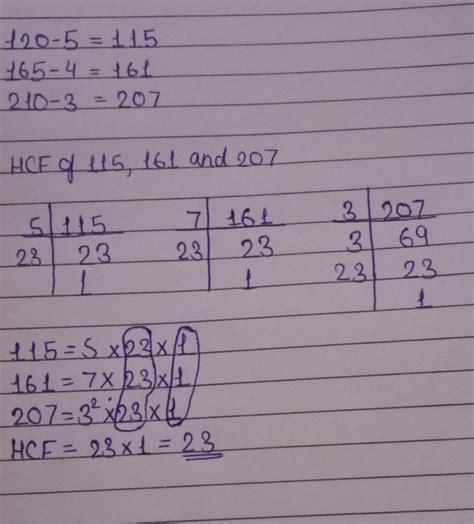 120-5 = 115
165-4 = 161
210-3 = 207
HCF of 115, 161 and 207
5 | 115 7 | 161 3 | 207
23 | 23 23 | 23 3 | 69
1 1 23 | 23
1
115 = 5 × 23 × 1
161 = 7 × 23 × 1
207 = 3² × 23 × 1
HCF = 23 × 1 = 23